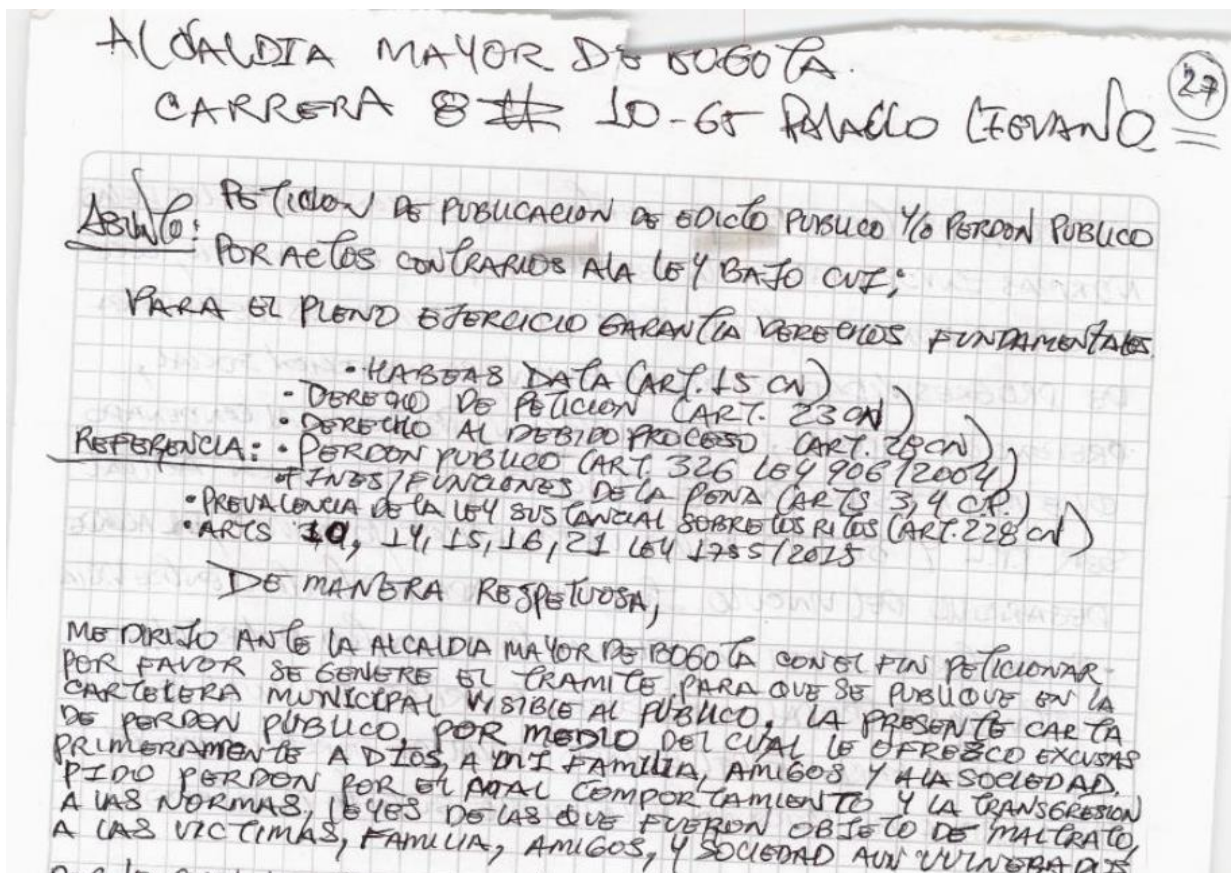 ALCALDIA MAYOR DE BOGOTA.
CARRERA 8 # 10-65 PALACIO LIEVANO
27
ASUNTO: PETICION DE PUBLICACION DE EDICTO PUBLICO Y/O PERDON PUBLICO
POR ACTOS CONTRARIOS A LA LEY BAJO CUI;
PARA EL PLENO EJERCICIO GARANTIA DERECHOS FUNDAMENTALES.
• HABEAS DATA (ART. 15 CN)
• DERECHO DE PETICION (ART. 23 CN)
• DERECHO AL DEBIDO PROCESO (ART. 28 CN)
REFERENCIA: • PERDON PUBLICO (ART. 326 LEY 906/2004)
• FINES/FUNCIONES DE LA PENA (ARTS 3, 4 C.P.)
• PREVALENCIA DE LA LEY SUSTANCIAL SOBRE LOS RITOS (ART. 228 CN)
• ARTS 14, 15, 16, 21 LEY 1755/2015
DE MANERA RESPETUOSA,
ME DIRIJO ANTE LA ALCALDIA MAYOR DE BOGOTA CON EL FIN PETICIONAR
POR FAVOR SE GENERE EL TRAMITE PARA QUE SE PUBLIQUE EN LA
CARTELERA MUNICIPAL VISIBLE AL PUBLICO. LA PRESENTE CARTA
DE PERDON PUBLICO, POR MEDIO DEL CUAL LE OFREZCO EXCUSAS
PRIMERAMENTE A DIOS, A MI FAMILIA, AMIGOS Y A LA SOCIEDAD.
PIDO PERDON POR EL COMPORTAMIENTO Y LA TRANSGRESION
A LAS NORMAS, LEYES DE LAS QUE FUERON OBJETO DE MALTRATO,
A LAS VICTIMAS, FAMILIA, AMIGOS, Y SOCIEDAD AUN VULNERADOS